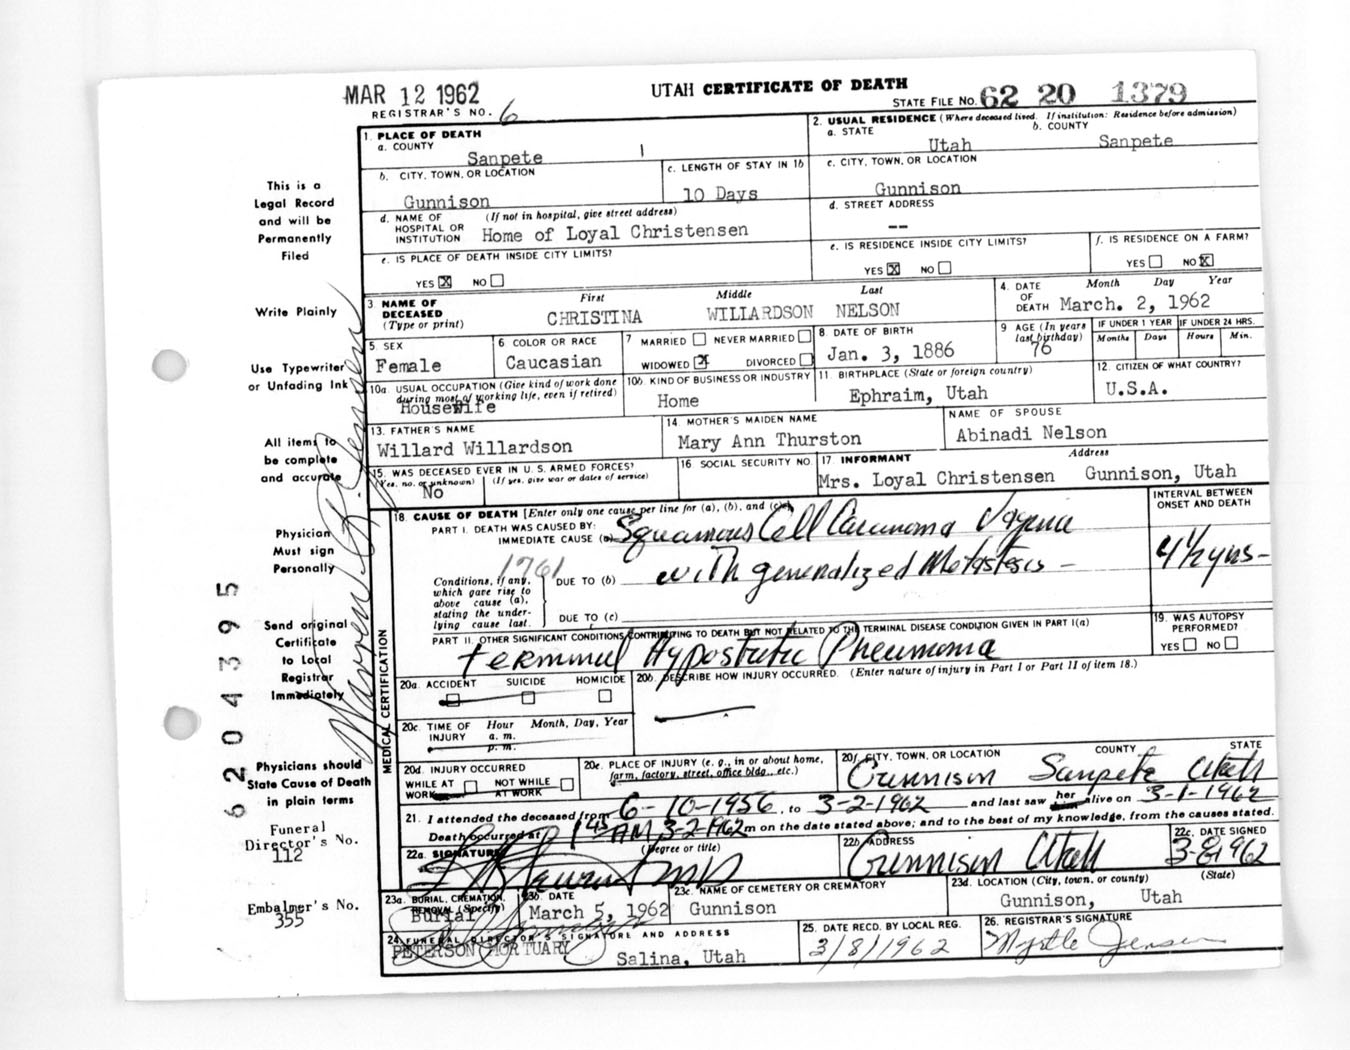 MAR 12 1962
UTAH CERTIFICATE OF DEATH
REGISTRAR'S NO. 6
STATE FILE NO. 62 20 1379
1. PLACE OF DEATH
a. COUNTY
Sanpete
2. USUAL RESIDENCE (Where deceased lived. If institution: Residence before admission)
a. STATE b. COUNTY
Utah Sanpete
b. CITY, TOWN, OR LOCATION
Gunnison
c. LENGTH OF STAY IN 1b
10 Days
c. CITY, TOWN, OR LOCATION
Gunnison
d. NAME OF HOSPITAL OR INSTITUTION (If not in hospital, give street address)
Home of Loyal Christensen
d. STREET ADDRESS
--
e. IS PLACE OF DEATH INSIDE CITY LIMITS?
YES X NO
e. IS RESIDENCE INSIDE CITY LIMITS?
YES X NO
f. IS RESIDENCE ON A FARM?
YES NO X
3. NAME OF DECEASED (Type or print)
First Middle Last
CHRISTINA WILLARDSON NELSON
4. DATE OF DEATH Month Day Year
March. 2, 1962
5 SEX
Female
6 COLOR OR RACE
Caucasian
7 MARRIED NEVER MARRIED
WIDOWED X DIVORCED
8 DATE OF BIRTH
Jan. 3, 1886
9 AGE (In years last birthday)
76
IF UNDER 1 YEAR IF UNDER 24 HRS.
Months Days Hours Min.
10a. USUAL OCCUPATION (Give kind of work done during most of working life, even if retired)
Housewife
10b. KIND OF BUSINESS OR INDUSTRY
Home
11. BIRTHPLACE (State or foreign country)
Ephraim, Utah
12. CITIZEN OF WHAT COUNTRY?
U.S.A.
13. FATHER'S NAME
Willard Willardson
14. MOTHER'S MAIDEN NAME
Mary Ann Thurston
NAME OF SPOUSE
Abinadi Nelson
15. WAS DECEASED EVER IN U.S. ARMED FORCES?
(Yes, no, or unknown) (If yes, give war or dates of service)
No
16 SOCIAL SECURITY NO.
17. INFORMANT Address
Mrs. Loyal Christensen Gunnison, Utah
18. CAUSE OF DEATH [Enter only one cause per line for (a), (b), and (c)]
PART I. DEATH WAS CAUSED BY:
IMMEDIATE CAUSE (a) Squamous Cell Carcinoma Vagina
1761
Conditions, if any, which gave rise to above cause (a), stating the underlying cause last.
DUE TO (b) with generalized Metastesis -
DUE TO (c)
INTERVAL BETWEEN ONSET AND DEATH
4½ yrs-
PART II. OTHER SIGNIFICANT CONDITIONS CONTRIBUTING TO DEATH BUT NOT RELATED TO THE TERMINAL DISEASE CONDITION GIVEN IN PART I(a)
terminal Hypostatic Pneumonia
19. WAS AUTOPSY PERFORMED?
YES NO
20a. ACCIDENT SUICIDE HOMICIDE
20b. DESCRIBE HOW INJURY OCCURRED. (Enter nature of injury in Part I or Part II of item 18.)
20c. TIME OF INJURY Hour Month, Day, Year
a. m.
p. m.
20d. INJURY OCCURRED
WHILE AT WORK NOT WHILE AT WORK
20e. PLACE OF INJURY (e. g., in or about home, farm, factory, street, office bldg., etc.)
20f. CITY, TOWN, OR LOCATION COUNTY STATE
Gunnison Sanpete Utah
21. I attended the deceased from 6-10-1956, to 3-2-1962 and last saw her alive on 3-1-1962
Death occurred at 1 45 AM 3-2-1962 m on the date stated above; and to the best of my knowledge, from the causes stated.
22a. SIGNATURE (Degree or title)
MD
22b. ADDRESS
Gunnison Utah
22c. DATE SIGNED
23a. BURIAL, CREMATION, REMOVAL (Specify)
Burial
23b. DATE
March 5, 1962
23c. NAME OF CEMETERY OR CREMATORY
Gunnison
23d. LOCATION (City, town, or county) (State)
Gunnison, Utah
24. FUNERAL DIRECTOR'S SIGNATURE AND ADDRESS
PETERSON MORTUARY
Salina, Utah
25. DATE RECD. BY LOCAL REG.
3/8/1962
26. REGISTRAR'S SIGNATURE
Myrtle Jensen
MEDICAL CERTIFICATION
This is a
Legal Record
and will be
Permanently
Filed
Write Plainly
Use Typewriter
or Unfading Ink
All items to
be complete
and accurate
Physician
Must sign
Personally
Send original
Certificate
to Local
Registrar
Immediately
Physicians should
State Cause of Death
in plain terms
Funeral
Director's No.
112
Embalmer's No.
355
Jensen
6204395